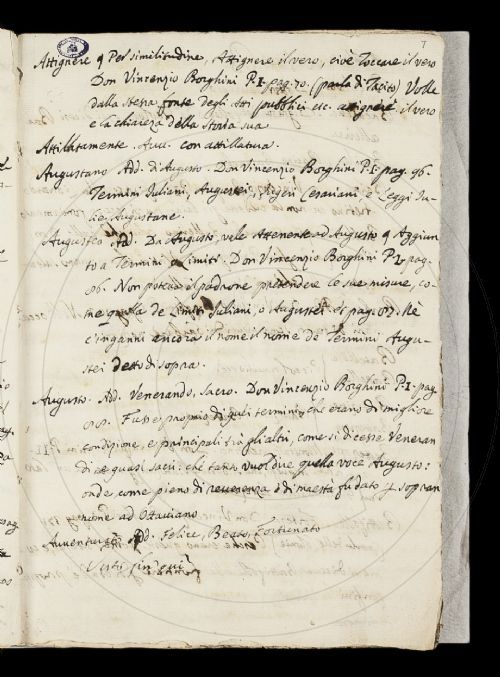 7
Attignere ¶ Per similitudine, Attignere il vero, cioè Toccare il vero
Don Vincenzio Borghini P. I. pag. 70. (parla di Tacito) Volle
dalla stessa fonte degli Atti pubblici etc. attignere il vero
e la chiarezza della Storia sua
Attillatamente. Avv. con attillatura.
Augustano Add. di Augusto. Don Vincenzio Borghini P. I. pag. 96.
Termini Iuliani, Augustei, Cesariani, e Leggi Iu-
lie Augustane.
Augusteo Add. Da Augusto, vale Attenente ad Augusto ¶ Aggiun
to a Termini o Limiti. Don Vincenzio Borghini P. I. pag.
86. Non poteva il padrone pretendere le sue misure, co-
me quella de Limiti Iuliani, o Augustei. et pag. 87. Nè
c'inganni ancora il nome il nome de Termini Augu-
stei detto di sopra.
Augusto. Add. Venerando, Sacro. Don Vincenzio Borghini P. I. pag.
Fusse proprio di quei termini, che erano di migliore
condizione, e principali fra gli altri, come si dicesse Veneran
di e quasi sacri: che tanto vuol dire quella voce Augusto:
onde, come pieno di reverenza e di maestà fu dato p sopran
nome ad Ottaviano
Avventurato Add. Felice, Beato, Fortunato
Visto fin qui